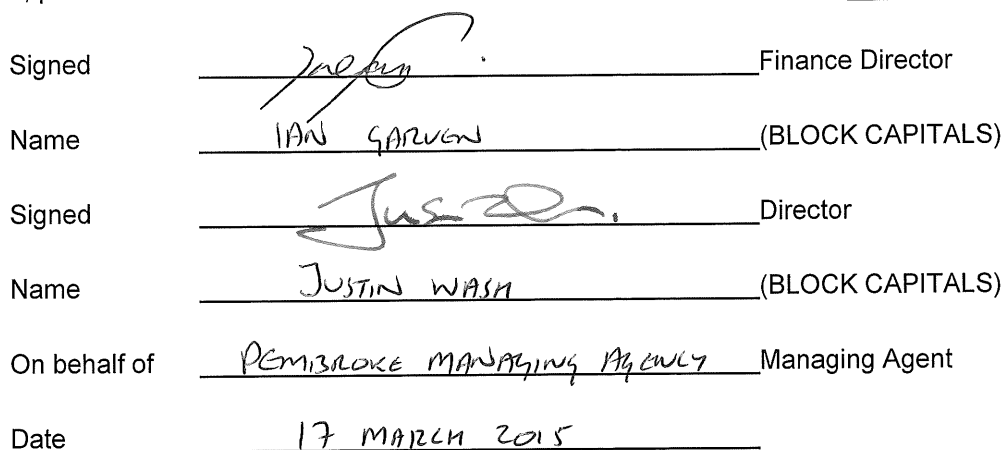 Signed Finance Director
Name IAN GARVEN (BLOCK CAPITALS)
Signed Director
Name JUSTIN WASH (BLOCK CAPITALS)
On behalf of PEMBROKE MANAGING AGENCY Managing Agent
Date 17 MARCH 2015